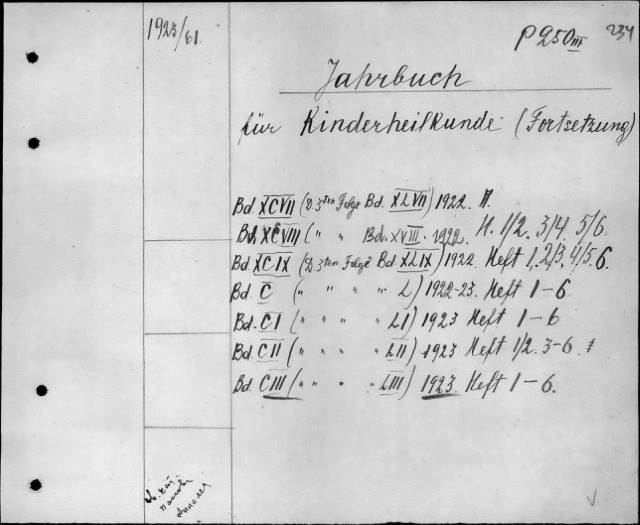 1923/61.
P 250 III 234
Jahrbuch
für Kinderheilkunde (Fortsetzung)
Bd. XCVII (D. 3ten Folge Bd. XLVII) 1922.
Bd. XCVIII (" " Bd. XVIII. 1922. H. 1/2. 3/4. 5/6.
Bd. XCIX (D. 3ten Folge Bd. XLIX) 1922 Heft 1, 2/3, 4/5. 6.
Bd. C (" " " " L) 1922-23. Heft 1-6
Bd. CI (" " " " LI) 1923 Heft 1-6
Bd. CII (" " " " LII) 1923 Heft 1/2. 3-6.
Bd. CIII (" " " " LIII) 1923 Heft 1-6.